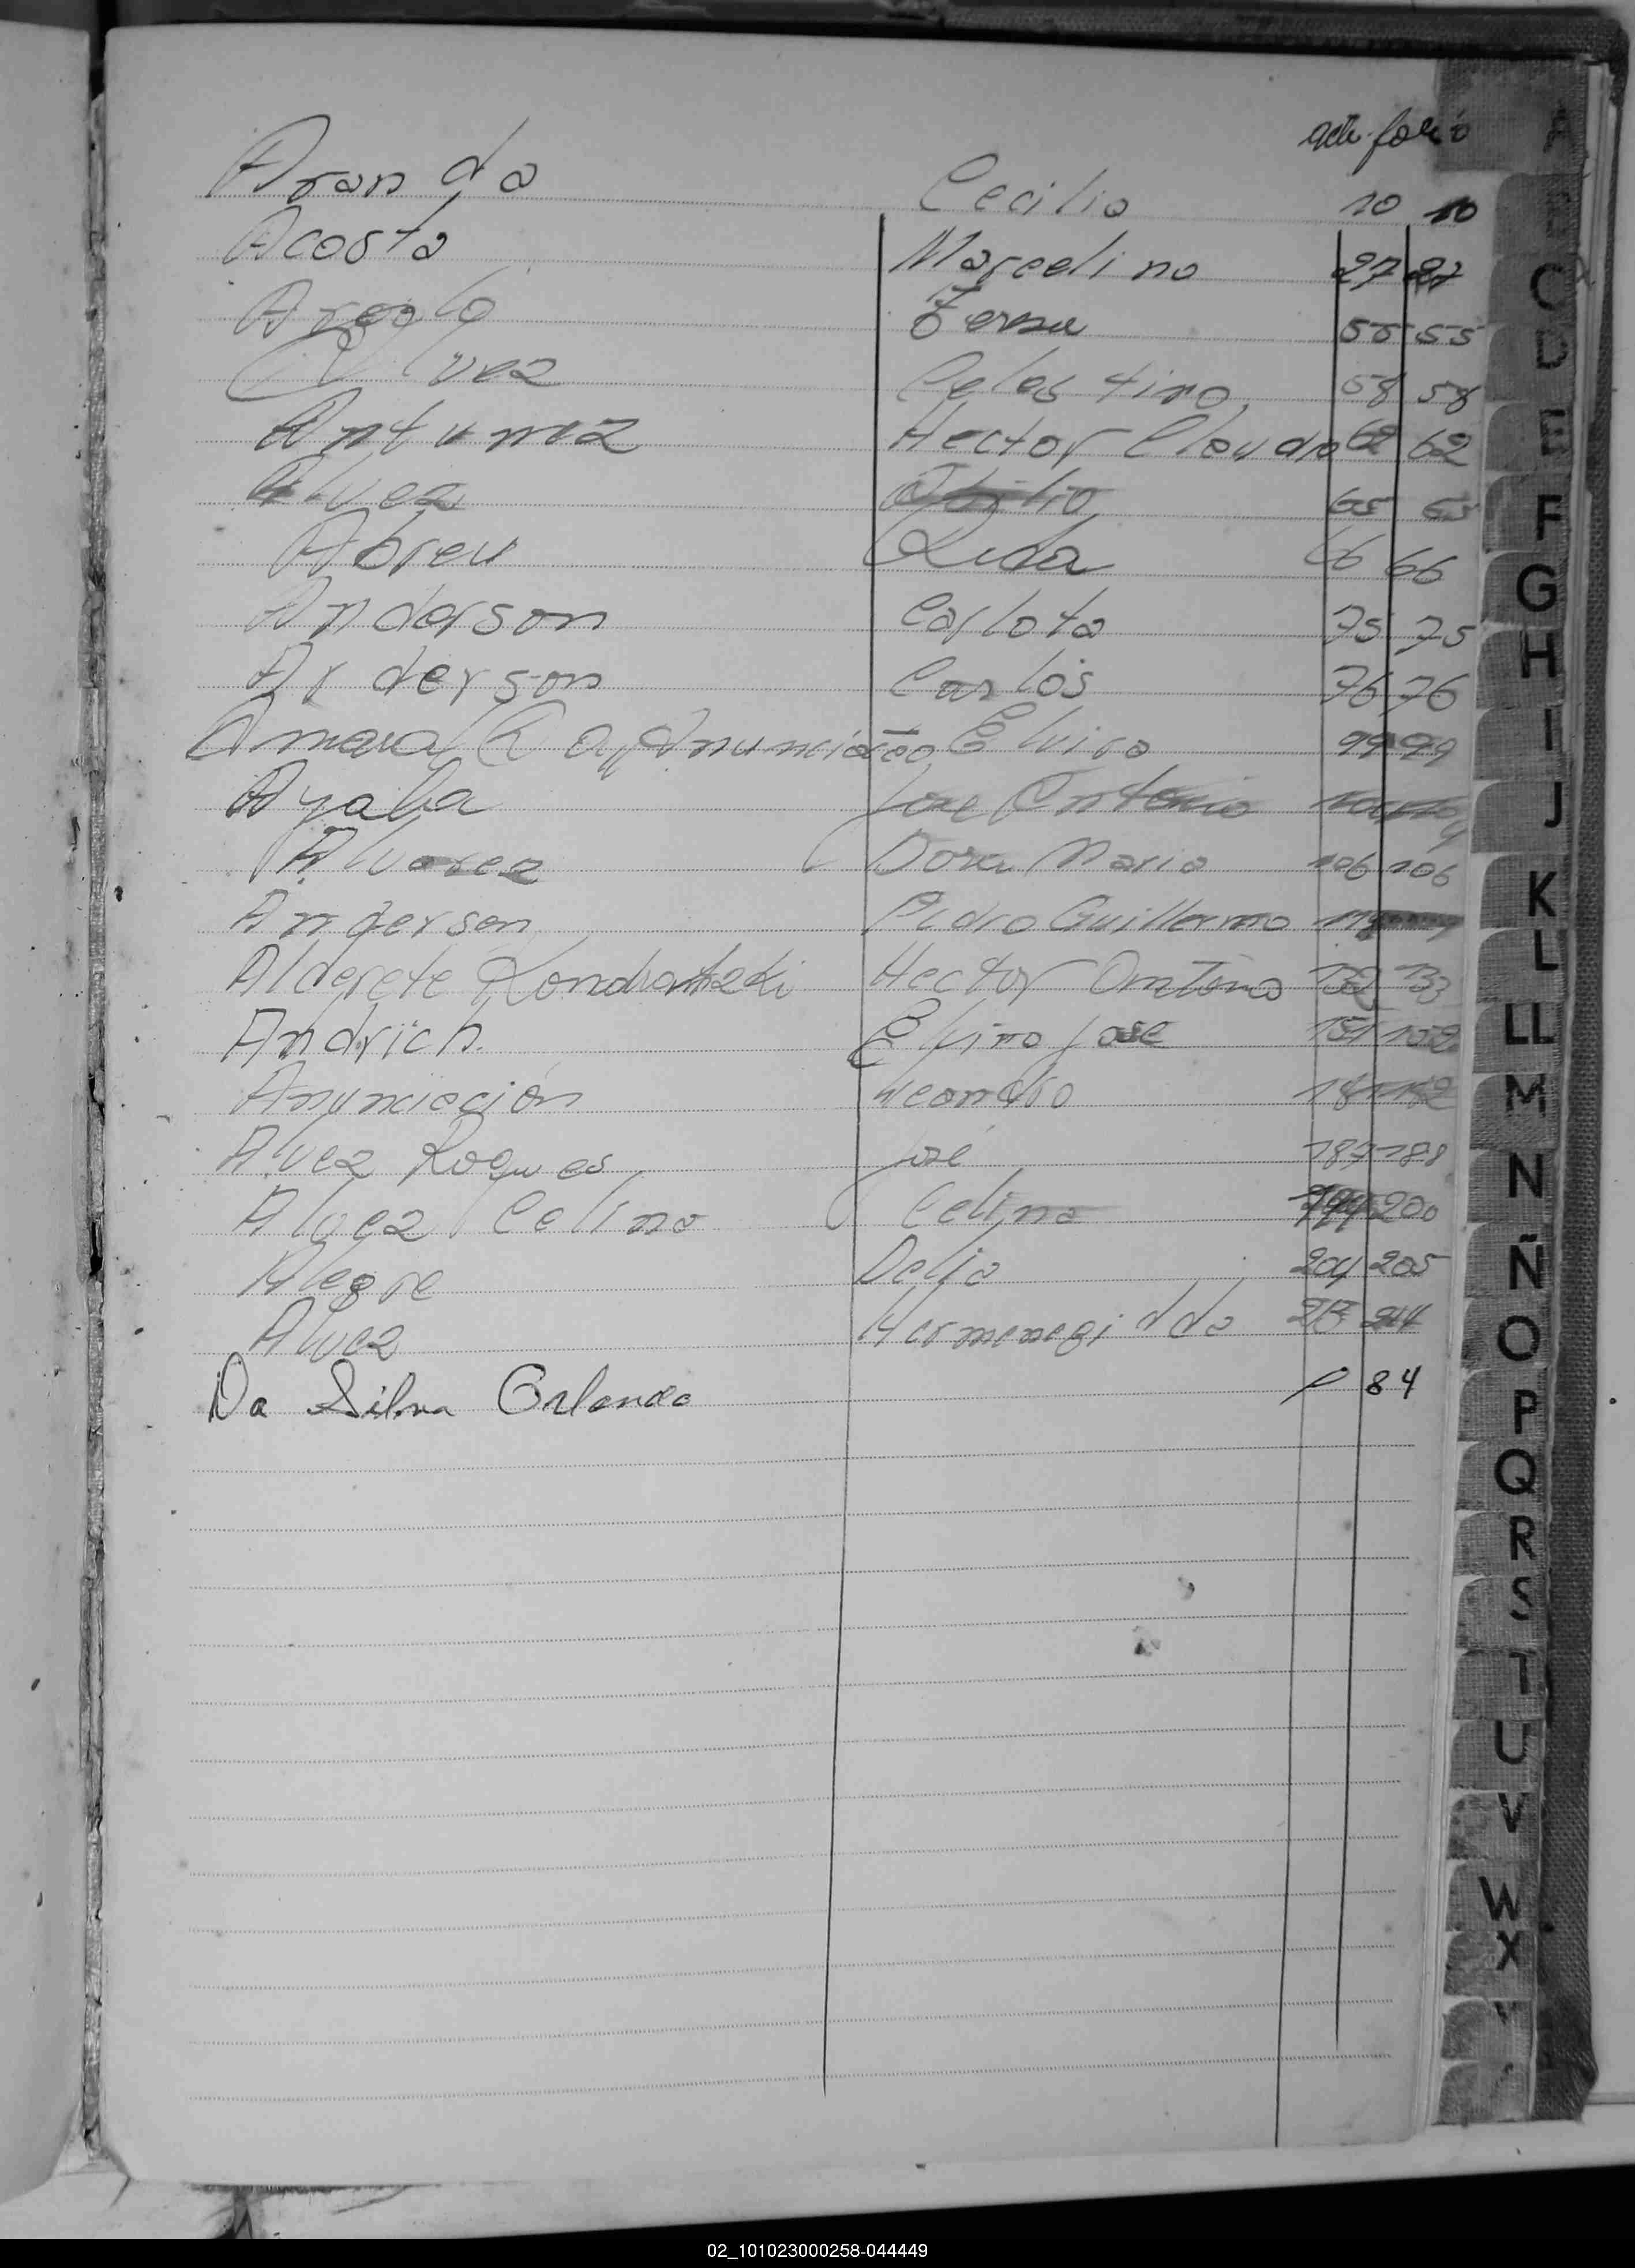 acta folio
Aranda Cecilio 10 10
Acosta Marcelino 27 27
55 55
Alvez Celestino 58 58
Antunez Hector Claudio 62 62
Alvez 65 65
Abreu 66 66
Anderson Carlota 75 75
Anderson Carlos 76 76
Amaral Da Anunciação Elvira 99 99
Ayala Jose Antonio
Alvarez Dora Maria 106 106
Anderson Pedro Guillermo
Alderete Hector Antonio 132 133
Andrich Elvino Jose 151 152
Anunciación Leandro 181 182
Alvez Rogues José 187 188
Alvez Celina Celina 199 200
Alegre Delia 204 205
Alvez 213 214
Da Silva Orlando 84
C
D
E
F
G
H
I
J
K
L
LL
M
N
Ñ
O
P
Q
R
S
T
U
V
W
X
02_101023000258-044449